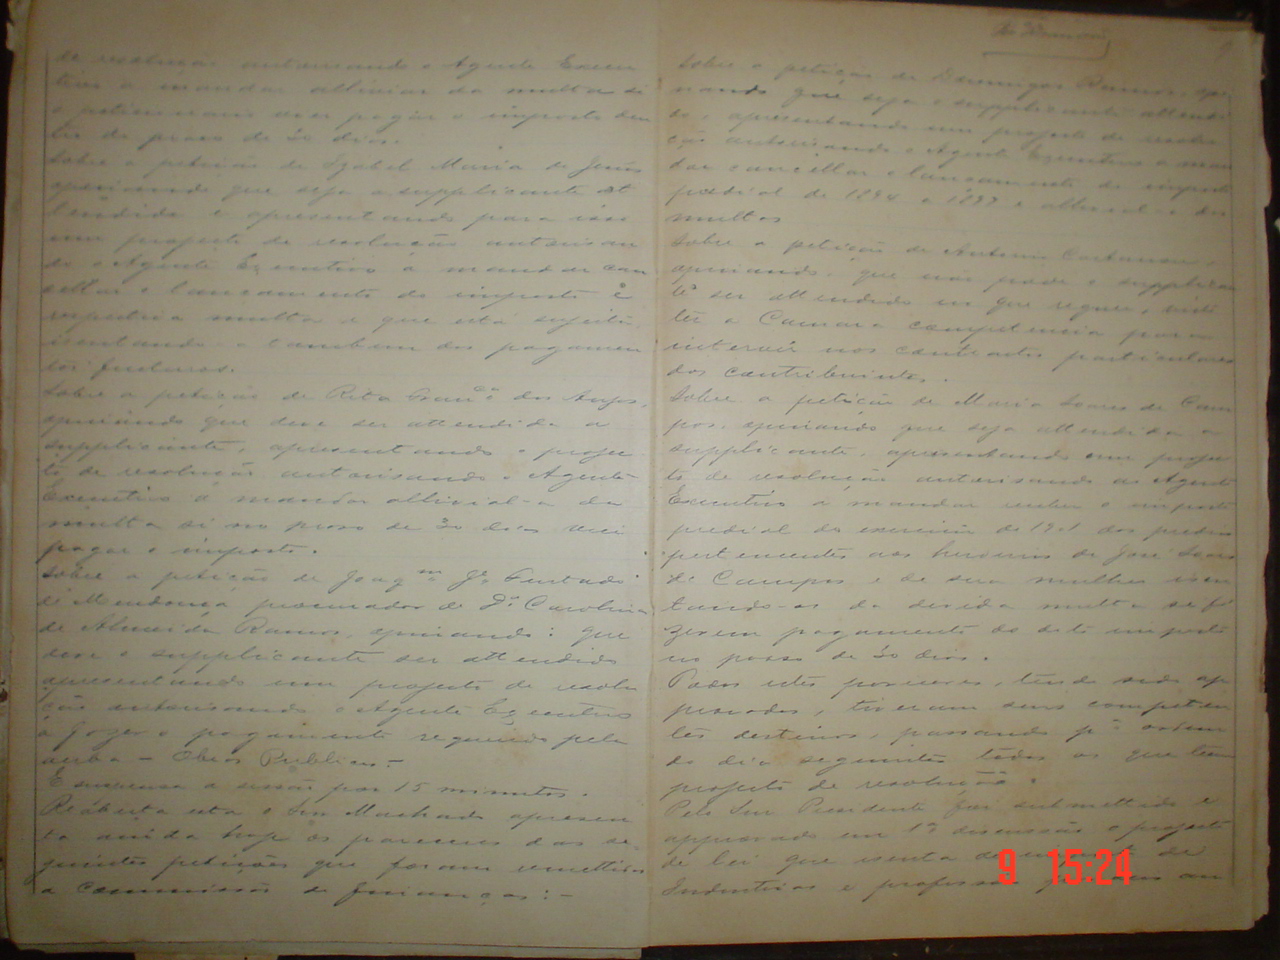 de resolução autorisando o Agente Execu
tivo a mandar alliviar da multa si
o peticionario vier pagar o imposto den
tro do praso de 30 dias.
Sobre a petição de Izabel Maria de Jesus
opiniando que seja a supplicante at
tendida e apresentando para isso
um projecto de resolução autorisan
do o Agente Executivo a mandar can
cellar o lançamento do imposto e
respectiva multa a que está sujeita,
isentando-a tambem dos pagamen
tos futuros.
Sobre a petição de Rita Franca dos Anjos,
opiniando que deve ser attendida a
supplicante, apresentando o projec
to de resolução autorisando o Agente
Executivo a mandar allivial-a da
multa si no praso de 30 dias vier
pagar o imposto.
Sobre a petição de Joaqm Je Furtado
de Mendonça procurador de Da Carolina
de Almeida Ramos, opiniando: que
deve o supplicante ser attendido
apresentando um projecto de resolu
ção autorisando o Agente Executivo
a fazer o pagamento requerido pela
verba - Obras Publicas -
É suspensa a sessão por 15 minutos.
Reáberta esta o Snr Machado apresen
ta ainda hoje os pareceres das se
guintes petições que foram remettidas
a commissão de finanças: -
Sobre a petição de Domingos Ramos, opi
niando que seja o supplicante attendi
do, apresentando um projecto de resolu
ção autorisando o Agente Executivo a man
dar cancellar o lançamento do imposto
predial de 1894 a 1899 e allivial-o das
multas
Sobre a petição de Antonio Caetano,
opiniando que não pode o supplican
te ser attendido no que requer,
ter a Camara competencia para
intervir nos contractos particulares
dos contribuintes.
Sobre a petição de Maria Soares de Cam
pos, opiniando que seja attendida a
supplicante, apresentando um projec
to de resolução autorisando ao Agente
Executivo a mandar receber o imposto
predial do exercicio de 1901 dos predios
pertencentes aos herdeiros de José Soares
de Campos e de sua mulher isen
tando-os da devida multa se fi
zerem pagamento do dito imposto
no praso de 30 dias.
Todos estes pareceres, tendo sido ap
provados, tiveram seus competen
tes destinos, passando pa ordem
do dia seguinte todos os que tem
projecto de resolução.
Pelo Snr Presidente foi submettido e
approvado em 1a discussão o projecto
de lei que isenta do de
Industrias e profissões
9 15:24